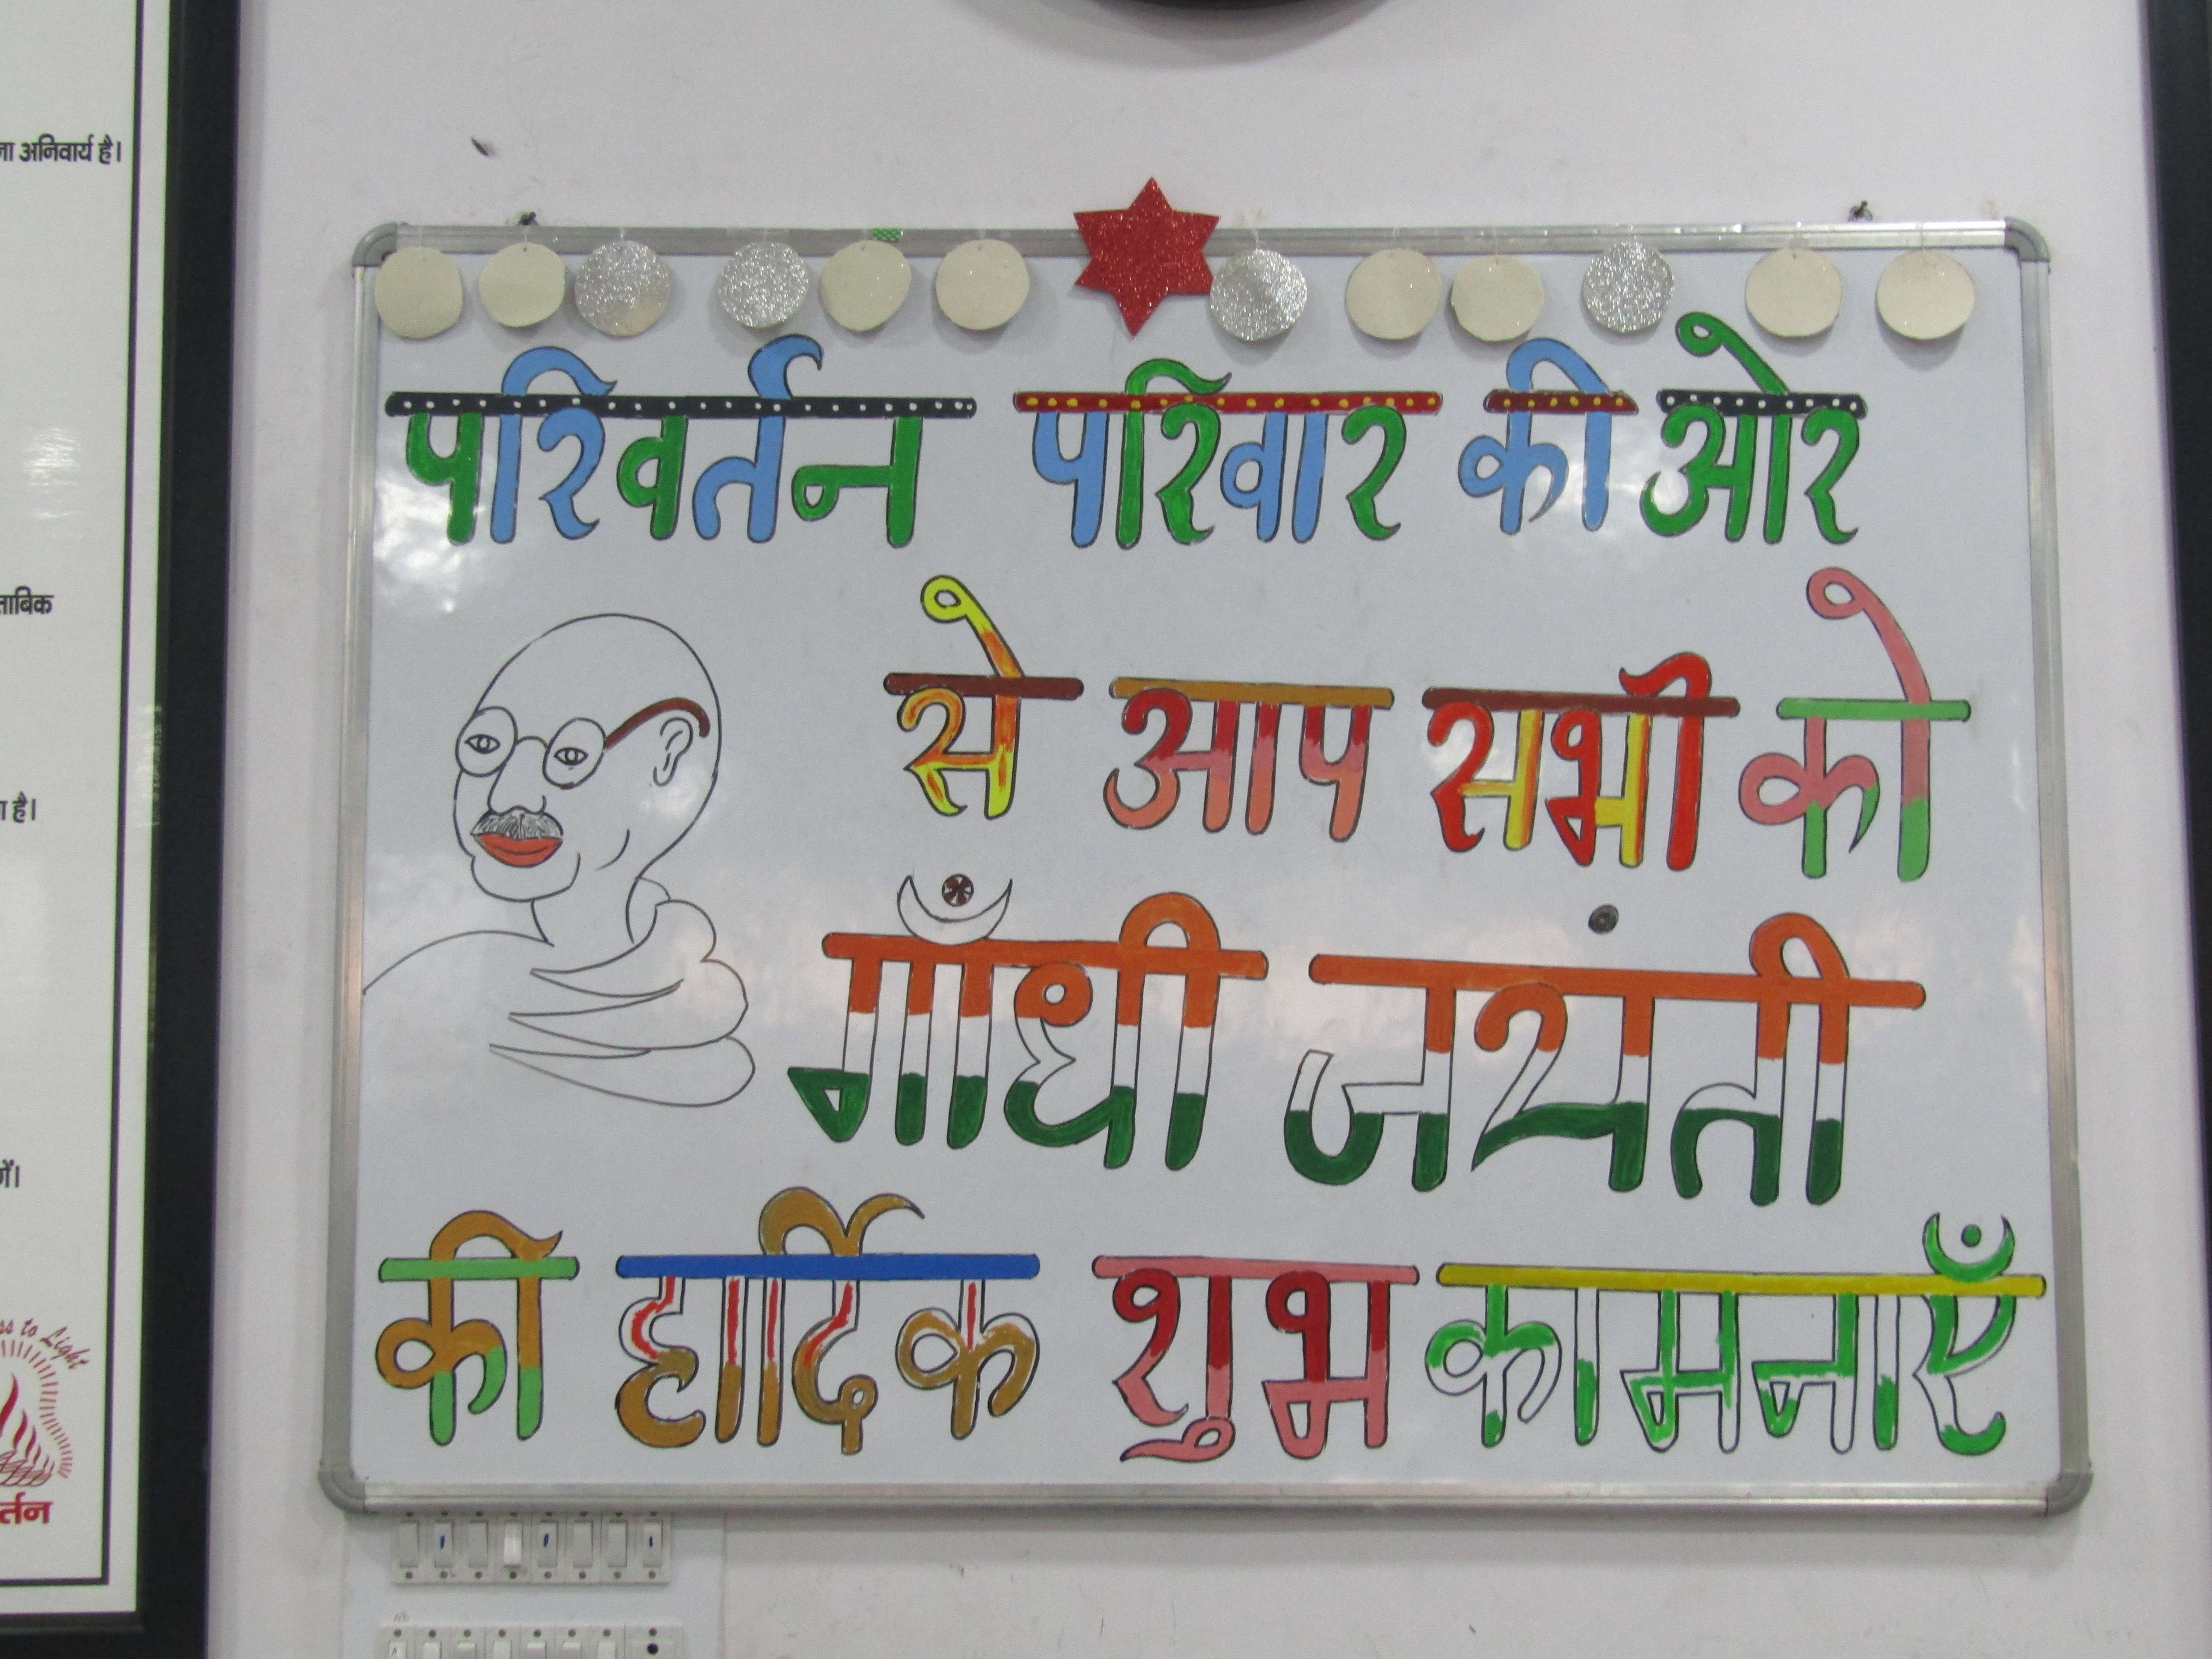 ना अनिवार्य है।
ताबिक
ा है।
र्तन
परिवर्तन परिवार की ओर
से आप सभी को
गाँधी जयंती
की हार्दिक शुभ कामनाएँ